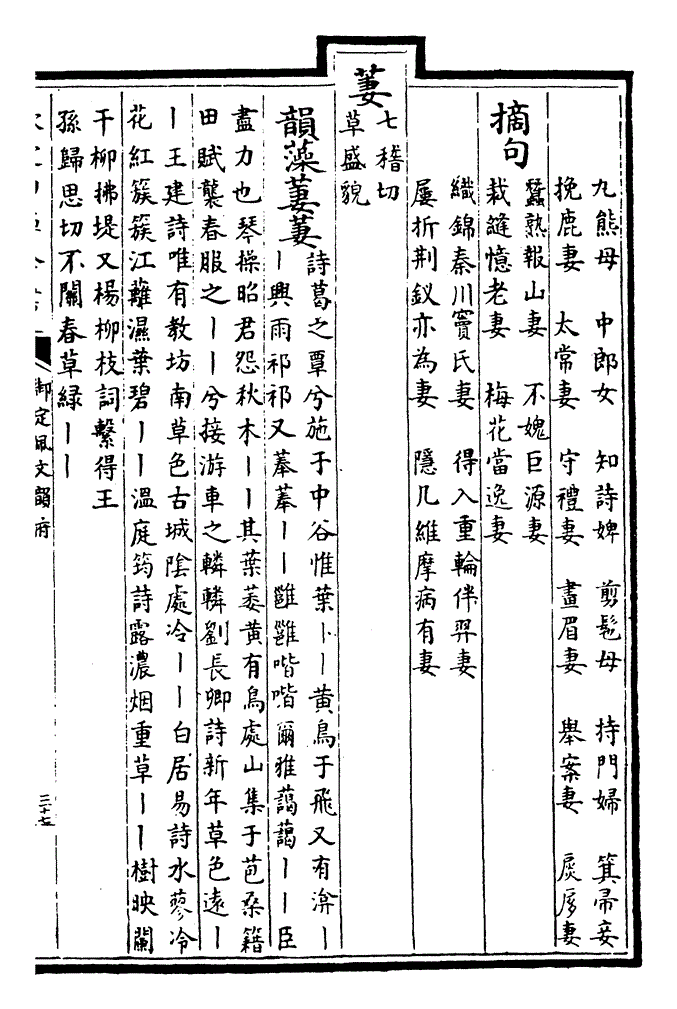 九熊母　中郎女　知詩婢　剪髢母　持門婦　箕帚妾
挽鹿妻　太常妻　守禮妻　畫眉妻　舉案妻　扊扅妻
摘句
蠶熟報山妻　不媿巨源妻
栽縫憶老妻　梅花當逸妻
織錦秦川竇氏妻　得入重輪伴羿妻
屢折荆釵亦為妻　隱几維摩病有妻
萋
七稽切
草盛貌
韻藻萋萋
詩葛之覃兮施于中谷惟葉丨丨黄鳥于飛又有渰丨
丨興雨祁祁又菶菶丨丨雝雝喈喈爾雅藹藹丨丨臣
盡力也琴操昭君怨秋木丨丨其葉萎黄有鳥處山集于苞桑籍
田賦襲春服之丨丨兮接游車之轔轔劉長卿詩新年草色遠丨
丨王建詩唯有教坊南草色古城隂處冷丨丨白居易詩水蓼冷
花紅簇簇江蘺濕葉碧丨丨温庭筠詩露濃烟重草丨丨樹映闌
干柳拂堤又楊柳枝詞繫得王
孫歸思切不關春草緑丨丨
御定佩文韻府
三十七